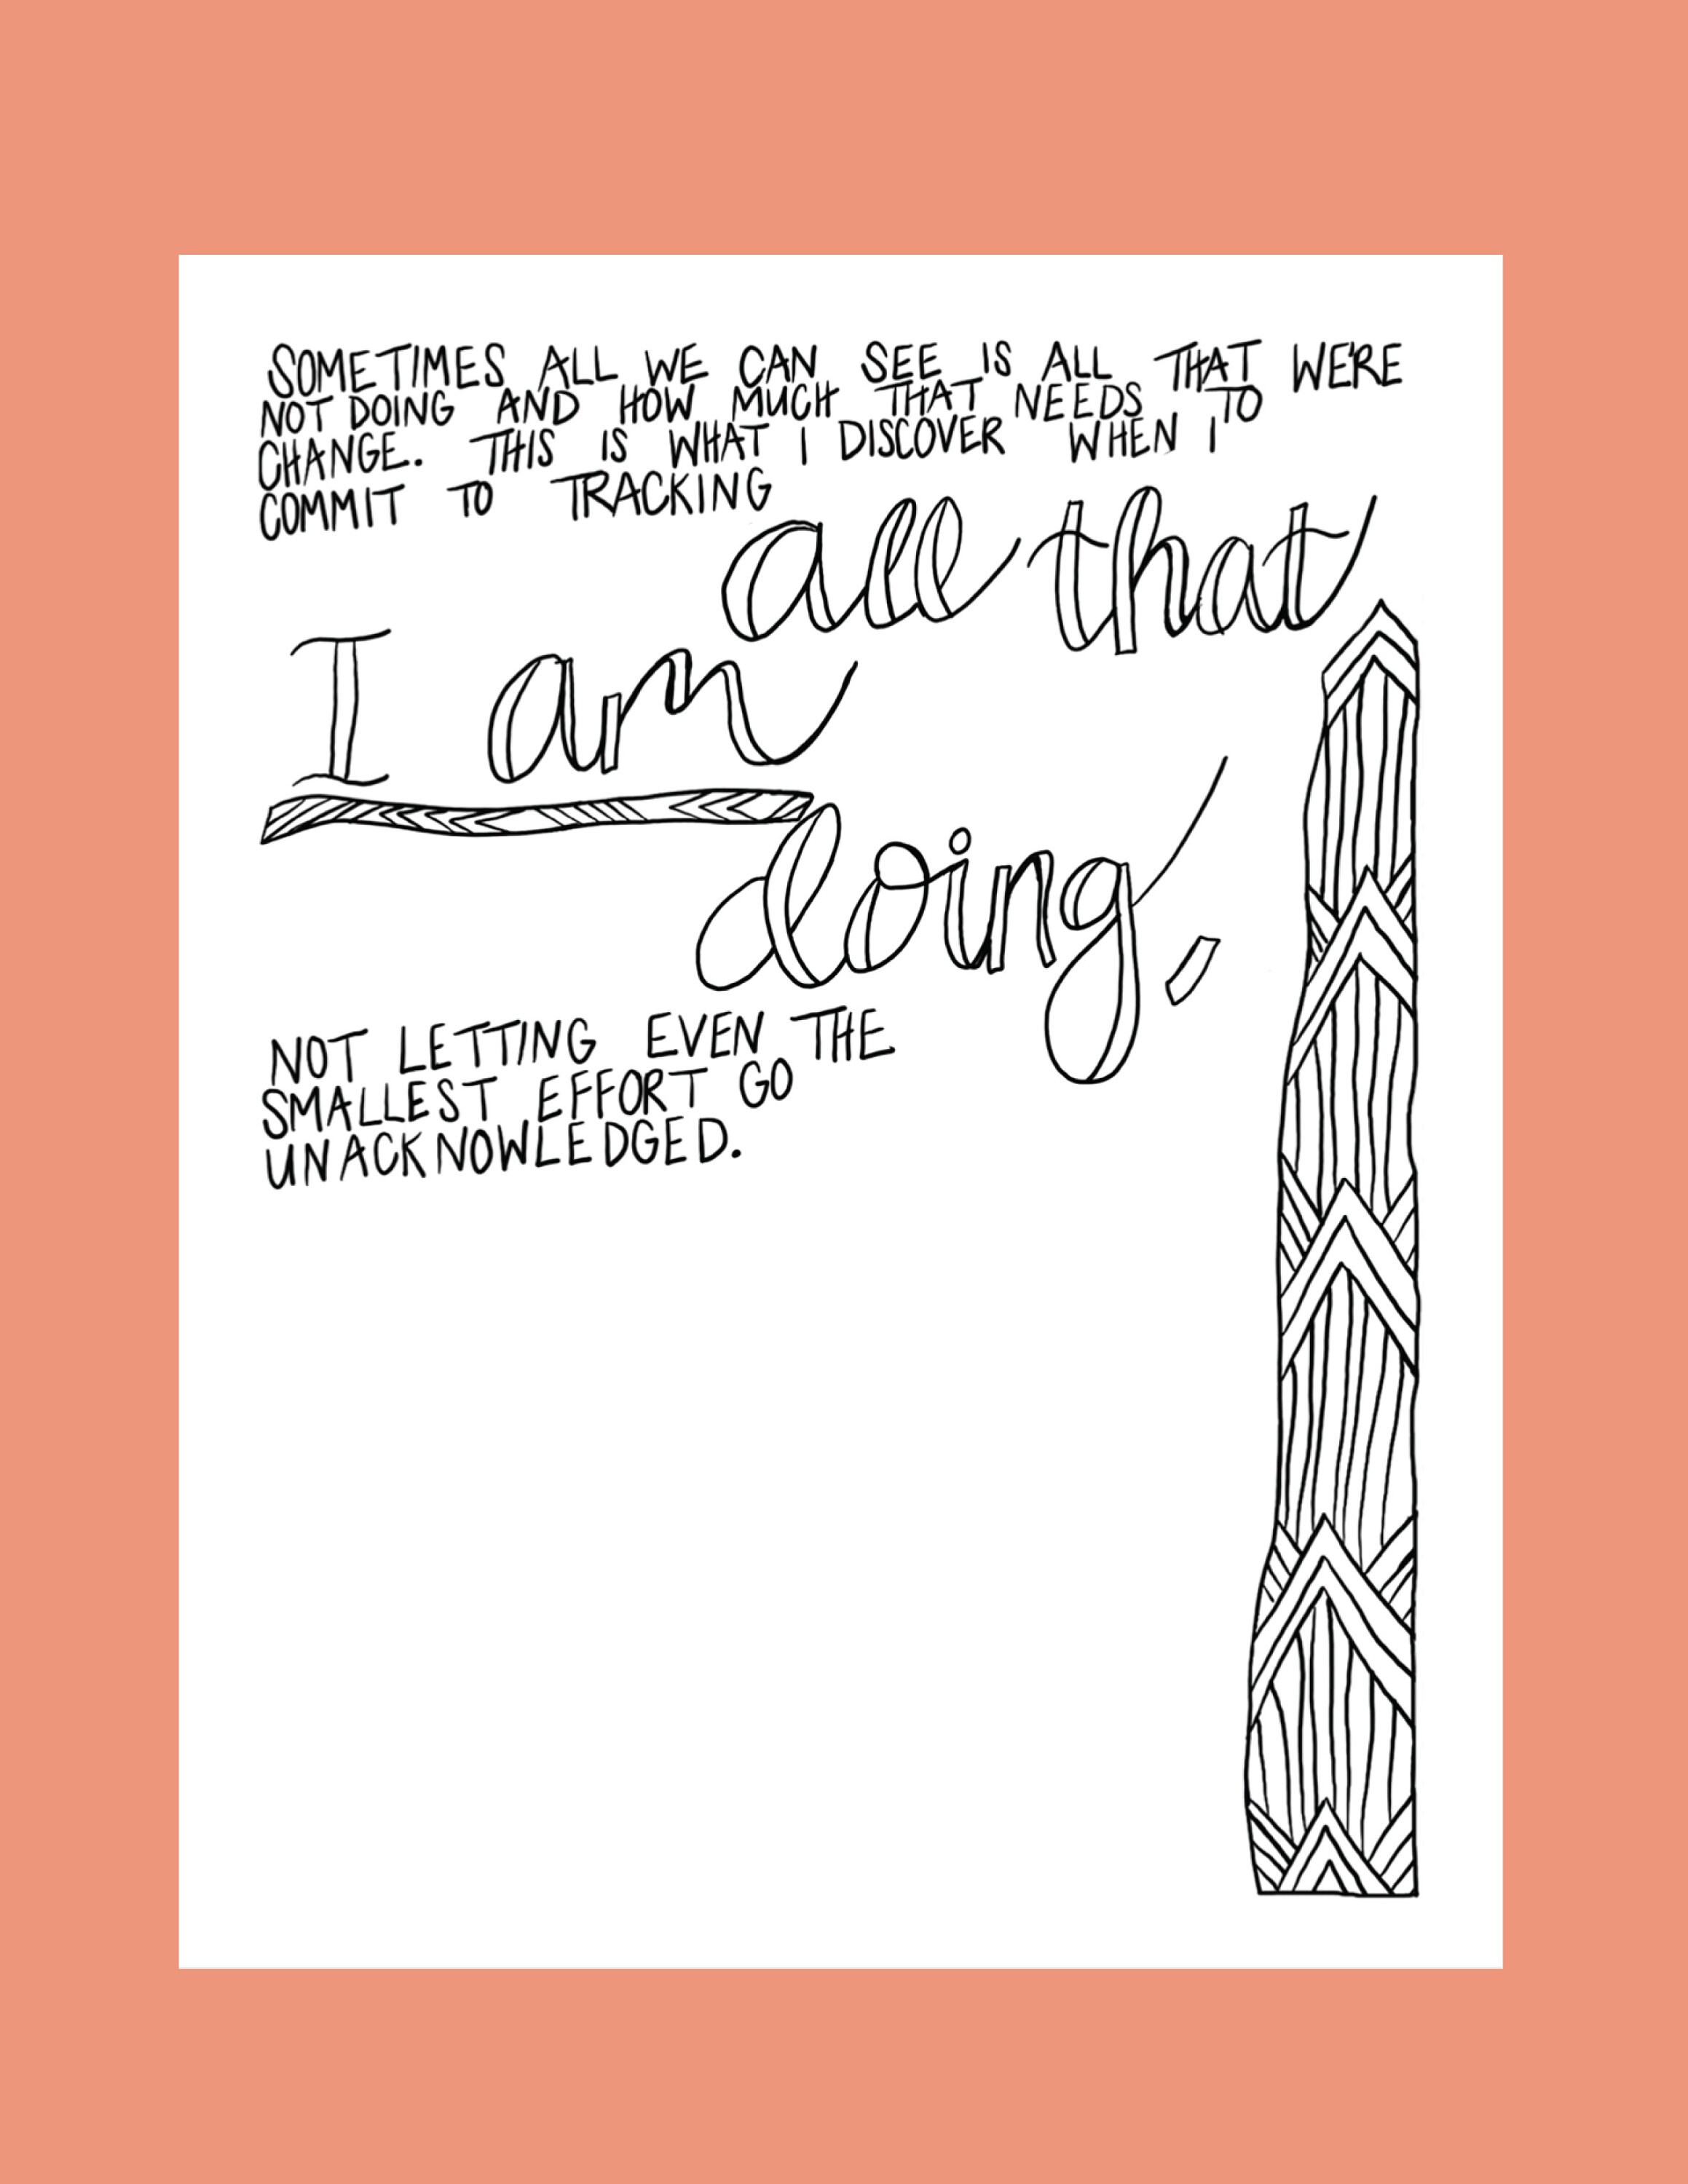 SOMETIMES ALL WE CAN SEE IS ALL THAT WE'RE
NOT DOING AND HOW MUCH THAT NEEDS TO
CHANGE. THIS IS WHAT I DISCOVER WHEN I
COMMIT TO TRACKING
all that
I am
doing,
NOT LETTING EVEN THE
SMALLEST EFFORT GO
UNACKNOWLEDGED.